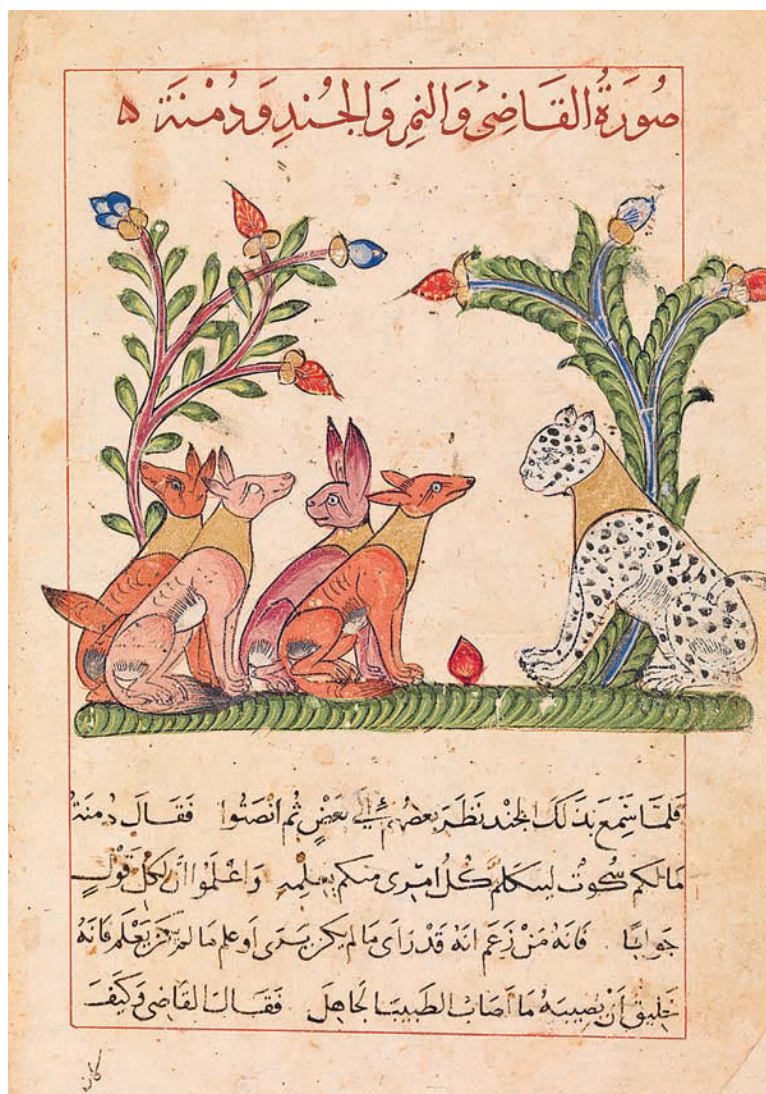 صُورَةُ القَاضِى وَالنمِرِ وَالجُندِ وَدُمْنَة ه
فَلمَّا سَمِعَ بِذَلكَ الجُند نَظَرَ بعضهُم إلى بَعْضٍ ثُم انْصَتُوا فَقَالَ دُمنَة
مَا لكم سُكوُت ليتكلم كُل امرِى منكم بِعِلْمِهِ وَاعْلَمُوا اَن لكُل قَوْلٍ
جَوابًا فَانهُ مَنْ زَعَم انهُ قَدْ رَاى مَا لم يكن يَرَى اَو علم مَا لم يكن يَعْلَم فَانهُ
خَلِيق اَنْ يصِيبَهُ مَا اصَابَ الطَبيبَ الجَاهِلَ فَقَالَ القَاضِى وَكَيفَ
كان